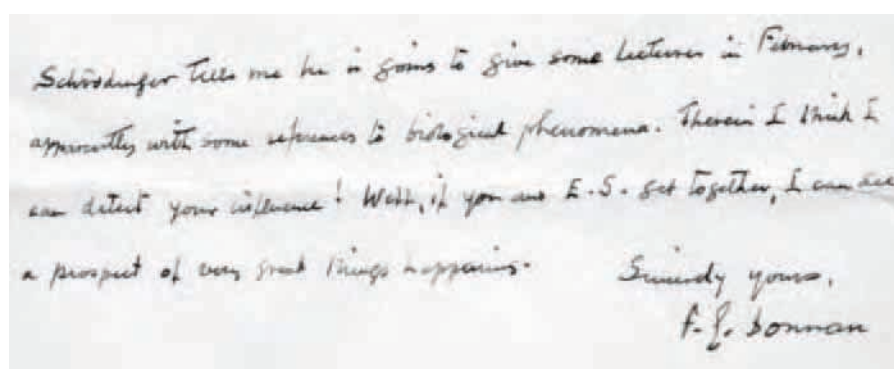 Schrödinger tells me he is going to give some lectures in February,
apparently with some references to biological phenomena. Therein I think I
can detect your influence! Well, if you and E.S. get together, I can see
a prospect of very great things happening.
Sincerely yours,
F. G. Donnan